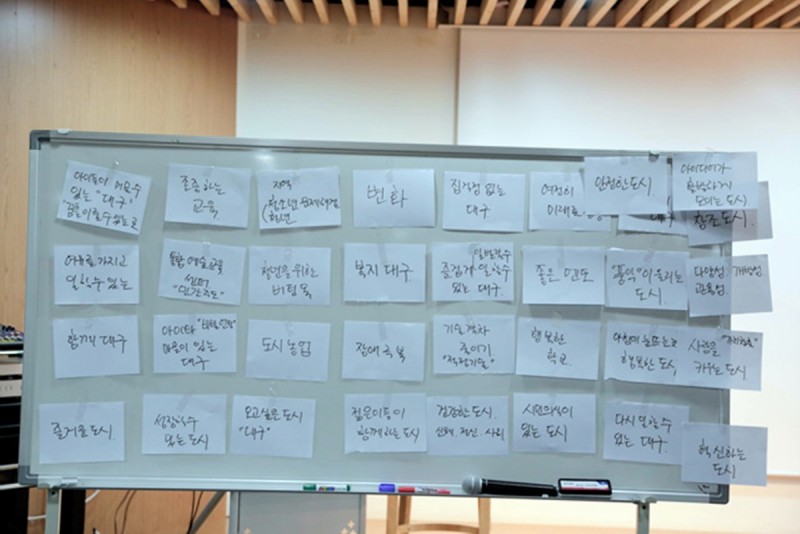 아이들이 머무를수
있는 "대구"
꿈을이룰수있는곳
존중하는
교육
지역
(청소년 문제해결
청년
변화
집걱정 없는
대구
여전히
미래로
대구
안전한도시.
아이디어가
풍성하게
모이는 도시
창조도시.
여유를 가지고
일할수 있는
통합예술교육
센터
"민간주도"
청년을위한
버팀목
복지 대구.
즐겁게 일할수
있는 대구.
좋은 멘토
"음악"이 흐르는
도시.
다양성
관용업.
개방성
함께 대구
마음이 있는
대구
도시농업
장애극복
기술격차
줄이기
"적정기술"
행복한
학교.
아침에 눈뜨는곳
행복한 도시,
사람을
키우는 도시
즐거운도시.
성장할수
있는도시
오고싶은도시
"대구"
젊은이들이
함께하는도시
건강한도시.
신체. 정신. 사회
시민의식이
있는 도시
다시 일할수
있는 대구.
혁신하는
도시